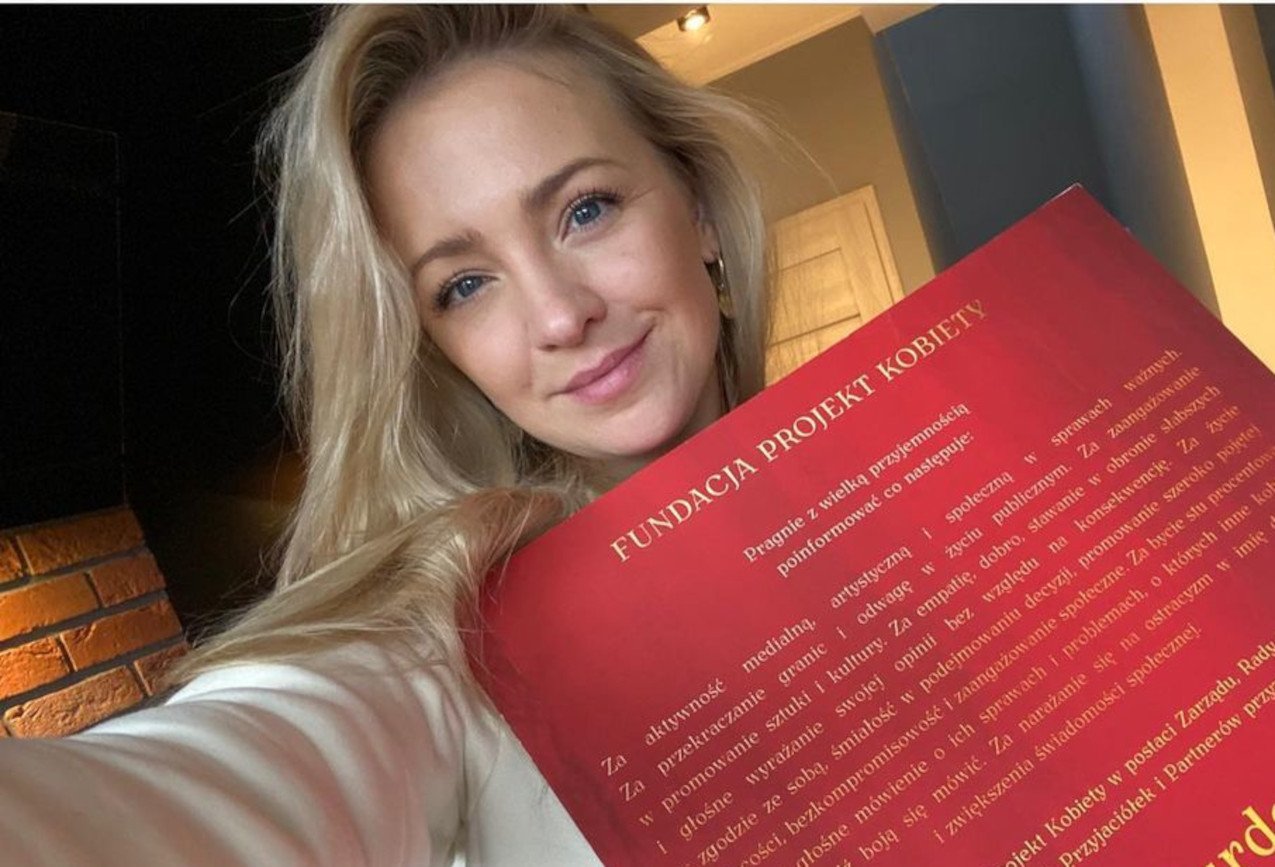 FUNDACJA PROJEKT KOBIETY
Pragnie z wielką przyjemnością
poinformować co następuje:
Za aktywność medialną, artystyczną i społeczną w sprawach ważnych.
Za przekraczanie granic i odwagę w życiu publicznym. Za zaangażowanie
w promowanie sztuki i kultury. Za empatię, dobro, stawanie w obronie słabszych
i głośne wyrażanie swojej opinii bez względu na konsekwencję. Za życie
zgodzie ze sobą, śmiałość w podejmowaniu decyzji, promowanie szeroko pojętej
bezkompromisowość i zaangażowanie społeczne. Za bycie stu procentową
głośne mówienie o ich sprawach i problemach, o których inne
boją się mówić. Za narażanie się na ostracyzm w imię
i zwiększenia świadomości społecznej.
Kobiety w postaci Zarządu, Rady
Przyjaciółek i Partnerów